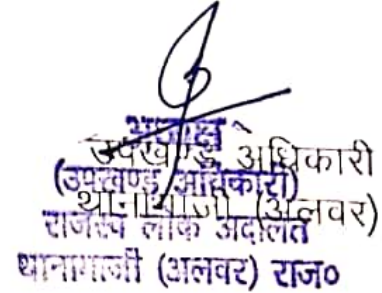 अध्यक्ष
उपखण्ड अधिकारी
(उपखण्ड अधिकारी)
थानागाजी (अलवर)
राजस्व लोक अदालत
थानागाजी (अलवर) राज०